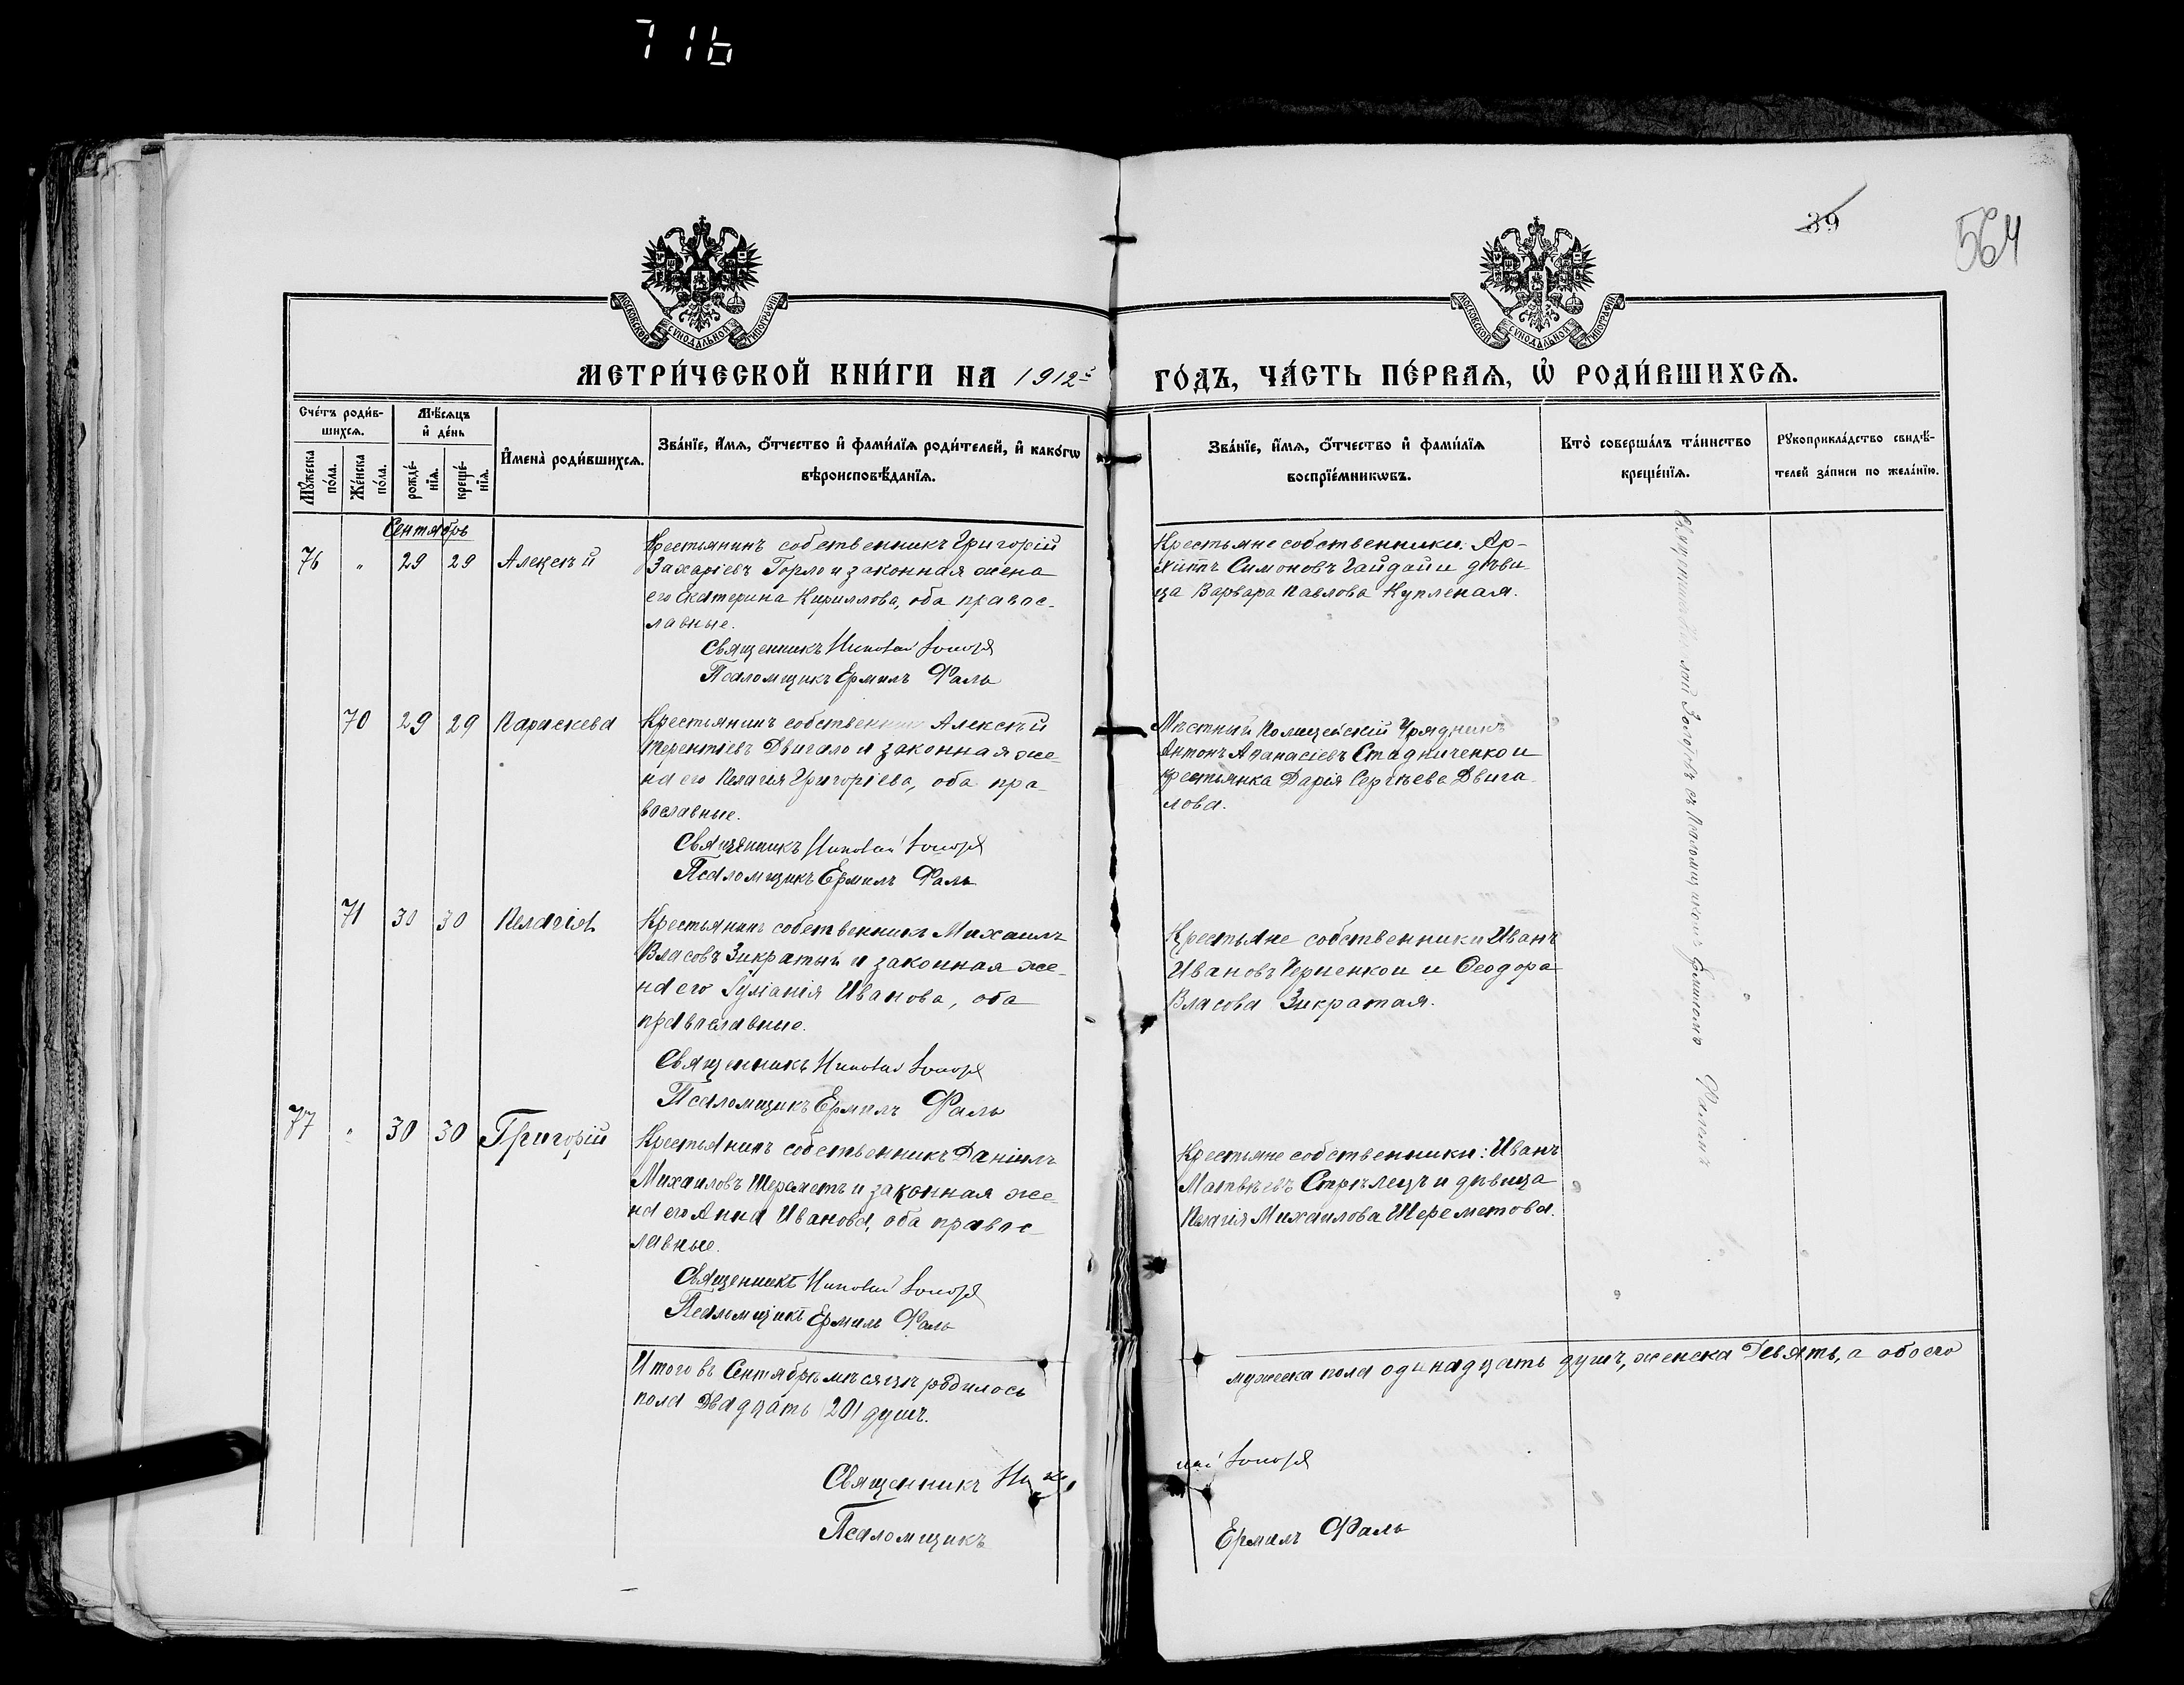 716
39
564
МОСКОВСКОЙ СУНОДАЛЬНОЙ ТИПОГРАФІИ
МОСКОВСКОЙ СУНОДАЛЬНОЙ ТИПОГРАФІИ
МЕТРИ́ЧЕСКОЙ КНИ́ГИ НА 1912й ГО́ДЪ, ЧА́СТЬ ПЕ́РВАѦ, Ѡ҆ РОДИ́ВШИХСѦ.
Сче́тъ роди́в-
шихсѧ.
Мꙋ́жеска
по́ла.
Же́нска
по́ла.
Мѣ́сѧцъ
и҆ де́нь
рожде́-
нїѧ.
креще́-
нїѧ.
И҆мена̀ роди́вшихсѧ.
Зва́нїе, и҆́мѧ, ѻ҆́тчество и҆ фами́лїѧ роди́телей, и҆ како́гѡ
вѣроисповѣ́данїѧ.
Зва́нїе, и҆́мѧ, ѻ҆́тчество и҆ фами́лїѧ
воспрїе́мникѡвъ.
Кто̀ соверша́лъ та́инство
креще́нїѧ.
Рꙋкоприкла́дство свидѣ́-
телей за́писи по жела́нїю.
Сентябрь
76 " 29 29 Алексѣй
Крестьянинъ собственникъ Григорій
Захаріевъ Горло и законная жена
его Екатерина Кириллова, оба правос-
лавные.
Священникъ
Псаломщикъ Ермилъ Фаль
Крестьяне собственники: Ар-
хипъ Симоновъ Гайдай и дѣви
ца Варвара Павлова Купленая.
70 29 29 Параскева
Крестьянинъ собственникъ Алексѣй
Терентіевъ Двигало и законная же-
на его Пелагія Григоріева, оба пра-
вославные.
Священникъ
Псаломщикъ Ермилъ Фаль
Мѣстный Полицейскій Урядникъ
Антонъ Аѳанасіевъ Стадниченко и
крестьянка Дарія Сергѣева Двига-
лова.
71 30 30 Пелагія
Крестьянинъ собственникъ Михаилъ
Власовъ Зикратый и законная же-
на его Іуліанія Иванова, оба
православные.
Священникъ
Псаломщикъ Ермилъ Фаль
Крестьяне собственники Иванъ
Ивановъ и Ѳеодора
Власова Зикратая.
77 " 30 30 Григорій
Крестьянинъ собственникъ Даніилъ
Михаиловъ Шереметъ и законная же-
на его Анна Иванова, оба правос-
лавные.
Священникъ
Псаломщикъ Ермилъ Фаль
Крестьяне собственники: Иванъ
Матвѣевъ Стрѣлецъ и дѣвица
Пелагія Михаилова Шереметова.
съ Псаломщикомъ Ермиломъ Фалемъ
Итого въ Сентябрѣ мѣсяцѣ родилось мужеска пола одинадцать душъ, женска Девять, а обоего
пола Двадцать (20) душъ.
Священникъ
Псаломщикъ Ермилъ Фаль